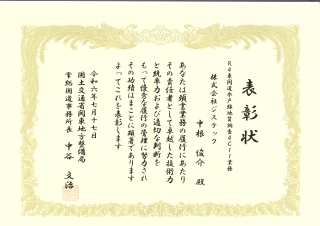 表彰状
R4東関道水戸線地質調査4C11業務
株式会社ジステック
中根 俊介 殿
あなたは頭書業務の履行にあたり
その責任者として卓越した技術力
と統率力および適切な判断を
もって優秀な履行の管理に努力され
その功績はまことに顕著であります
よってこれを表彰します
令和六年七月十七日
国土交通省関東地方整備局
常総国道事務所長 中谷 文治